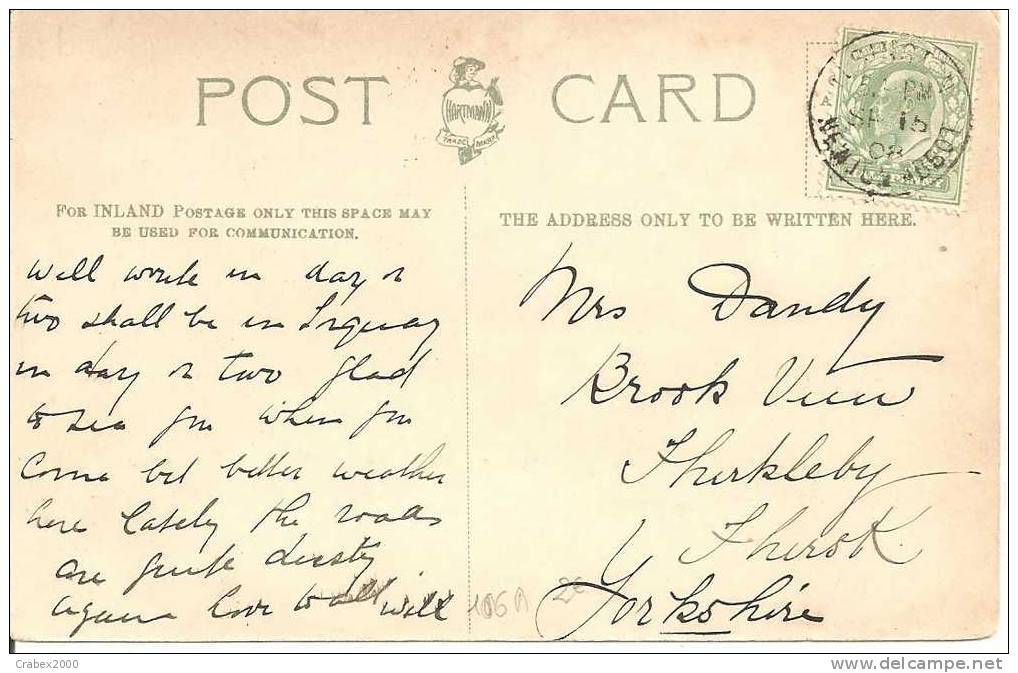 POST CARD
HARTMANN
TRADE MARK
FOR INLAND POSTAGE ONLY THIS SPACE MAY
BE USED FOR COMMUNICATION.
THE ADDRESS ONLY TO BE WRITTEN HERE.
PM
SP 15
08
NEWTON ABBOT
Will write in day or
two shall be in Torquay
in day or two glad
to see you when you
come bet better weather
here lately the roads
are quite dusty
again love to all will
Mrs Dandy
Brook View
Thirkleby
Thirsk
Yorkshire
106A
Crabex2000
www.delcampe.net